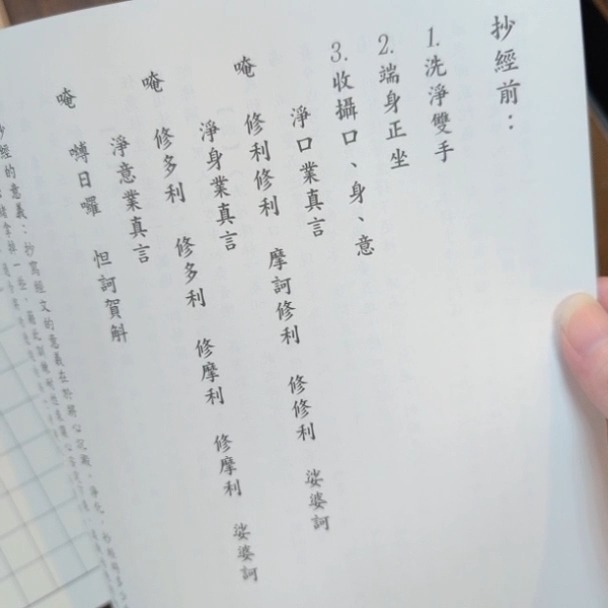 抄經前：
1.洗淨雙手
2.端身正坐
3.收攝口、身、意
淨口業真言
唵 修利修利 摩訶修利 修修利 娑婆訶
淨身業真言
唵 修多利 修多利 修摩利 修摩利 娑婆訶
淨意業真言
唵 嚩日囉 怛訶賀斛
抄經的意義：抄寫經文的意義在於將心沉澱、淨化，